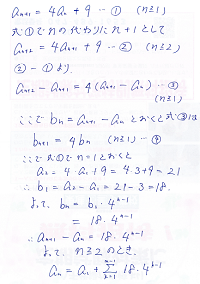 aₙ₊₁ = 4aₙ + 9 … ① (n≧1)
式①でnの代わりにn+1として
aₙ₊₂ = 4aₙ₊₁ + 9 … ② (n≧2)
② - ① より
aₙ₊₂ - aₙ₊₁ = 4(aₙ₊₁ - aₙ) … ③
(n≧1)
ここで bₙ = aₙ₊₁ - aₙ とおくと式③は
bₙ₊₁ = 4bₙ (n≧1) … ④
ここで式①でn=1とおくと
a₂ = 4・a₁ + 9 = 4・3 + 9 = 21
∴ b₁ = a₂ - a₁ = 21 - 3 = 18.
よって、bₙ = b₁・4ⁿ⁻¹
= 18・4ⁿ⁻¹
∴ aₙ₊₁ - aₙ = 18・4ⁿ⁻¹
よって、n≧2のとき、
aₙ = a₁ + Σₖ₌₁ⁿ⁻¹ 18・4ᵏ⁻¹